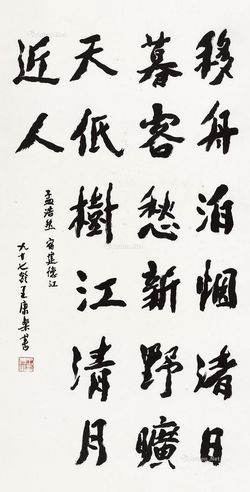 移舟泊烟渚日
暮客愁新野曠
天低樹江清月
近人
孟浩然 宿建德江
九十七齡王康樂書